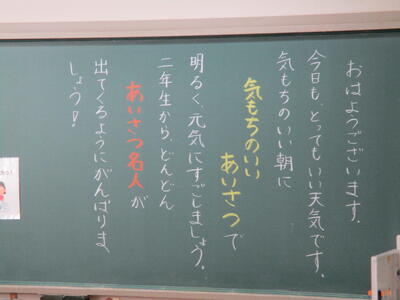 おはようございます。
今日も、とってもいい天気です。
気もちのいい朝に
気もちのいい
あいさつで
明るく、元気にすごしましょう。
二年生から、どんどん
あいさつ名人が
出てくるようにがんばりま
しょう!